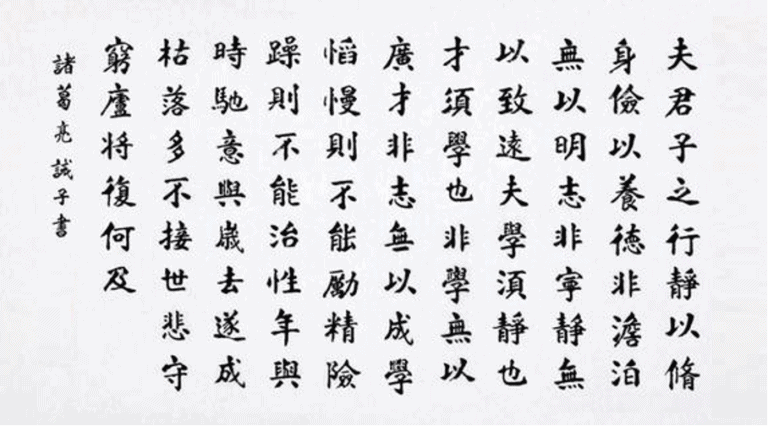 夫君子之行靜以脩
身儉以養德非澹泊
無以明志非寧靜無
以致遠夫學須靜也
才須學也非學無以
廣才非志無以成學
慆慢則不能勵精險
躁則不能治性年與
時馳意與歲去遂成
枯落多不接世悲守
窮廬將復何及
諸葛亮誡子書